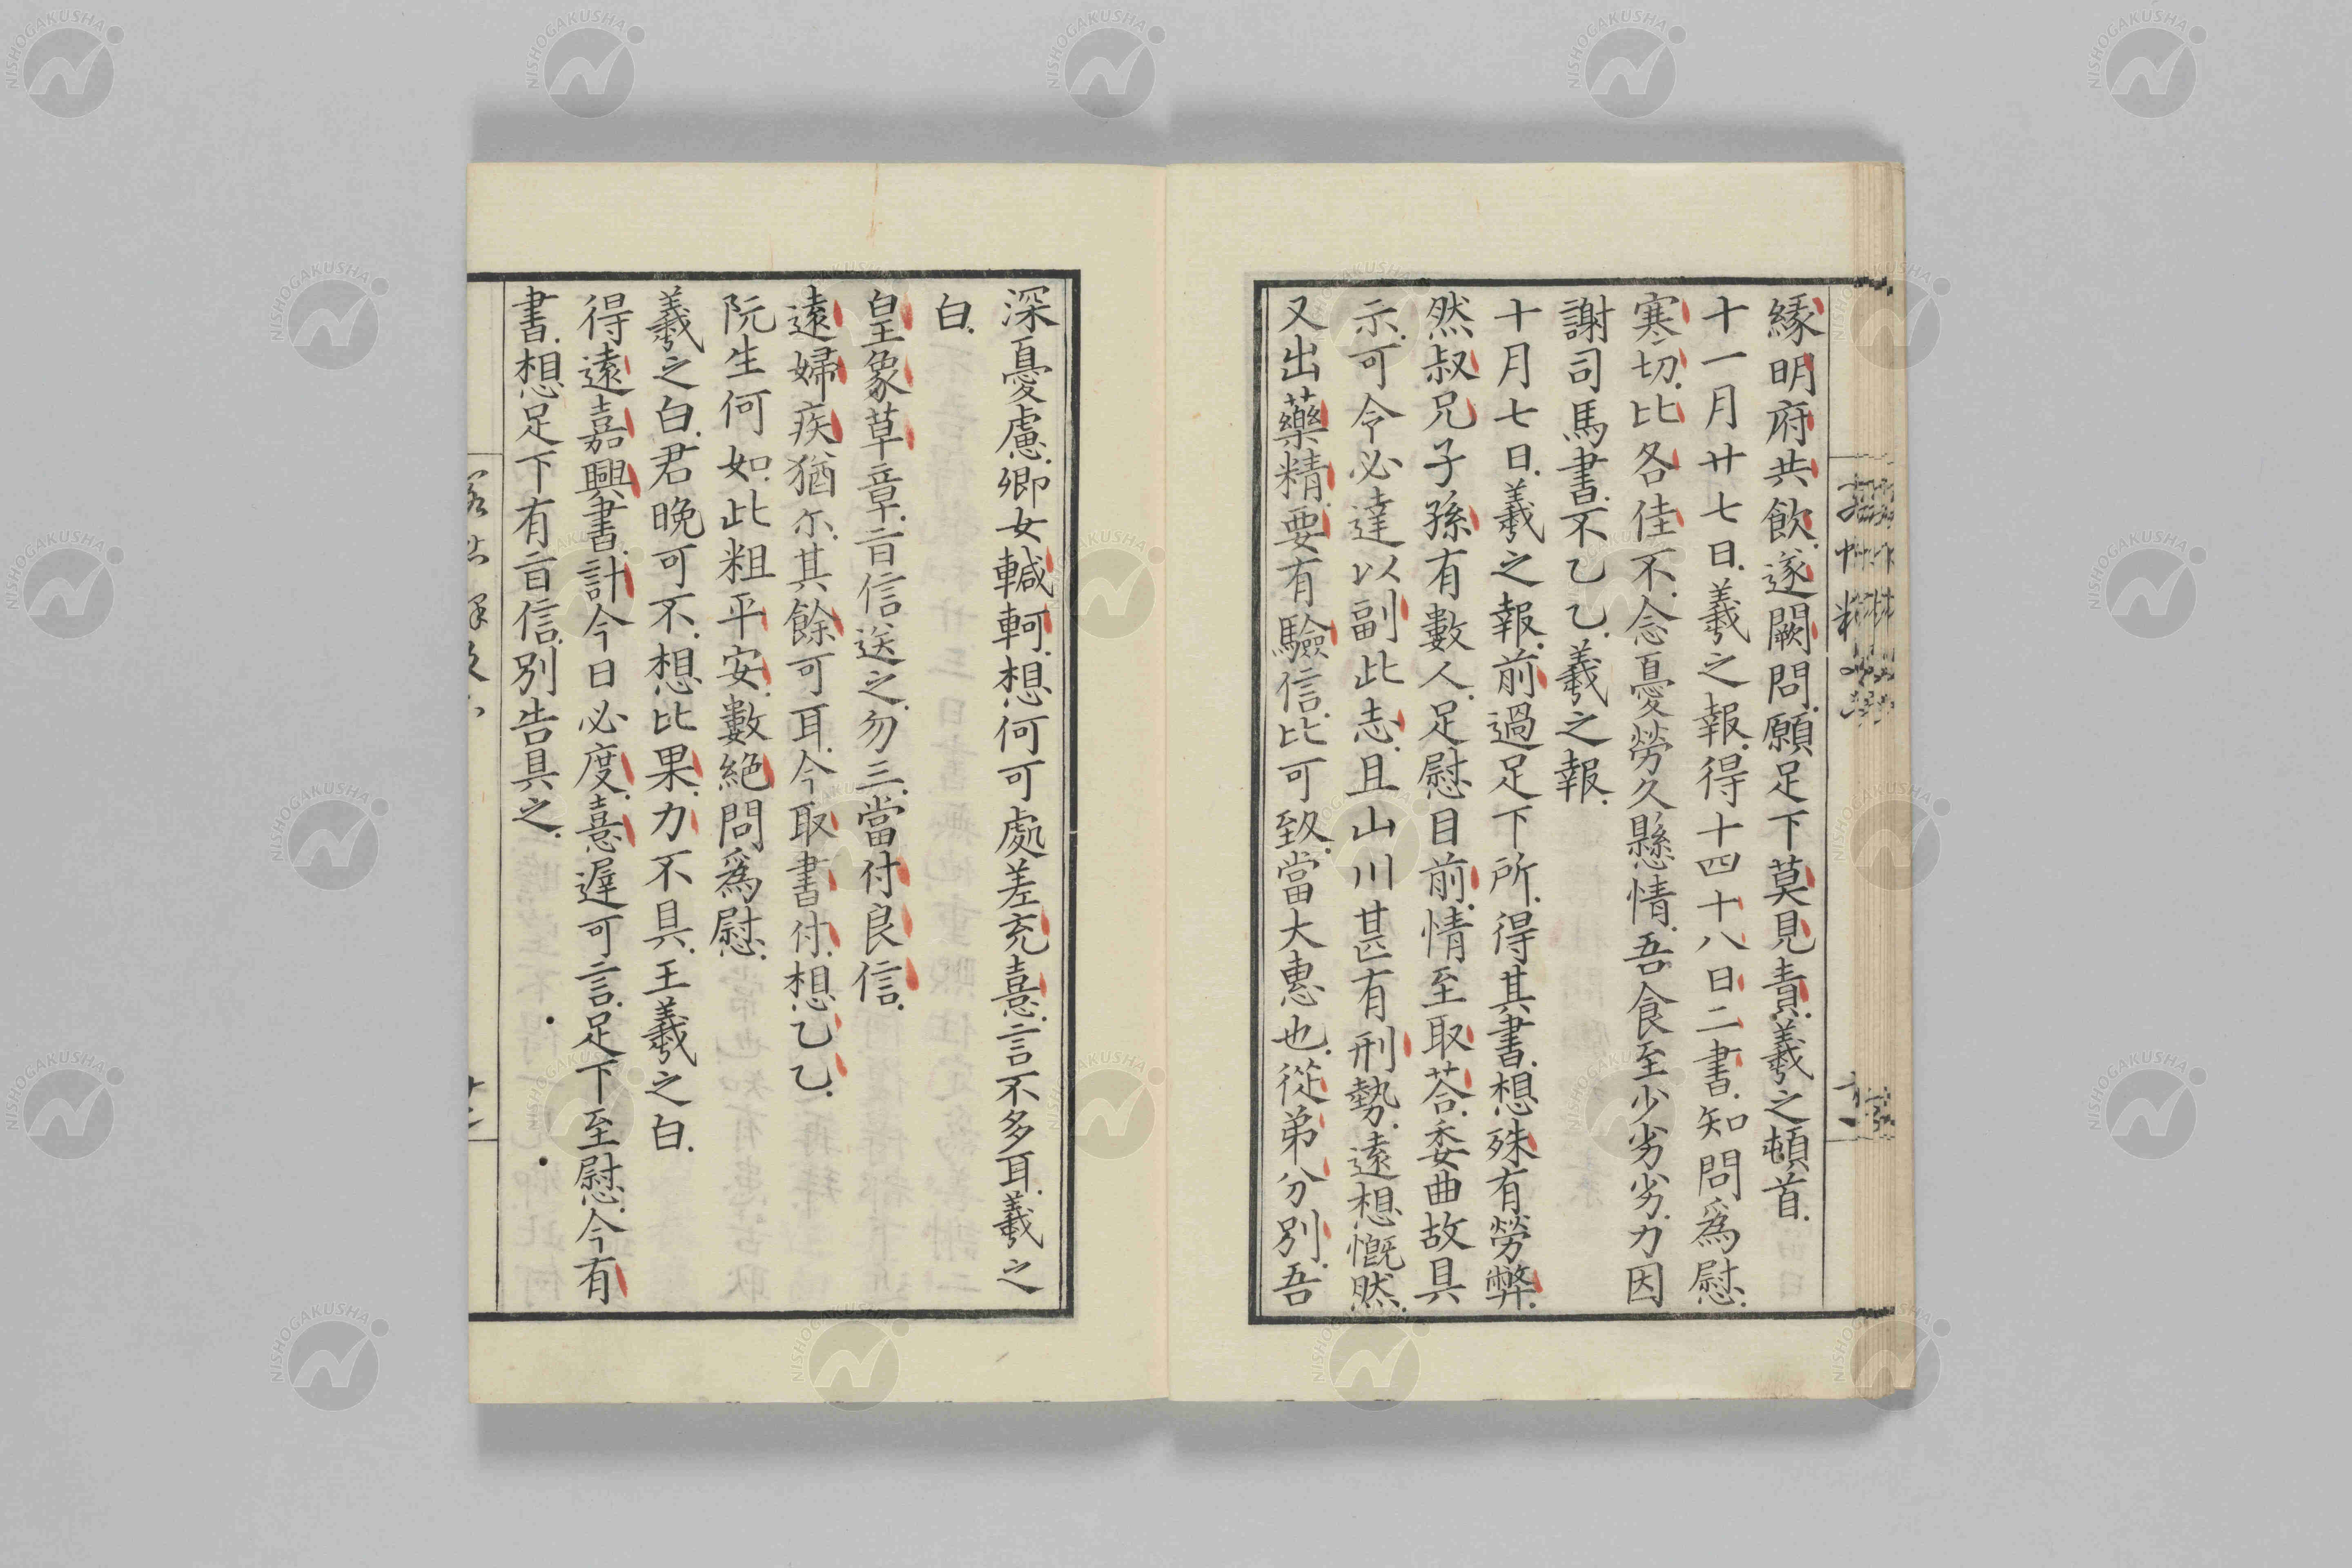 緣明府共飲遂闕問願足下莫見責羲之頓首
十一月廿七日羲之報得十四十八日二書知問爲慰
寒切比各佳不念憂勞久懸情吾食至少劣劣力因
謝司馬書不乙乙羲之報
十月七日羲之報前過足下所得其書想殊有勞弊
然叔兄子孫有數人足慰目前情至取荅委曲故具
示可令必達以副此志且山川甚有刑勢遠想慨然
又出藥精要有驗信比可致當大惠也從弟分別吾
深憂慮卿女轗軻想何可處差充憙言不多耳羲之
白
皇象草章旨信送之勿三當付良信
遠婦疾猶尒其餘可耳今取書付想乙乙
阮生何如此粗平安數絕問爲慰
羲之白君晚可不想比果力不具王羲之白
得遠嘉興書計今日必度憙遲可言足下至慰今有
書想足下有旨信別告具之
NISHOGAKUSHA